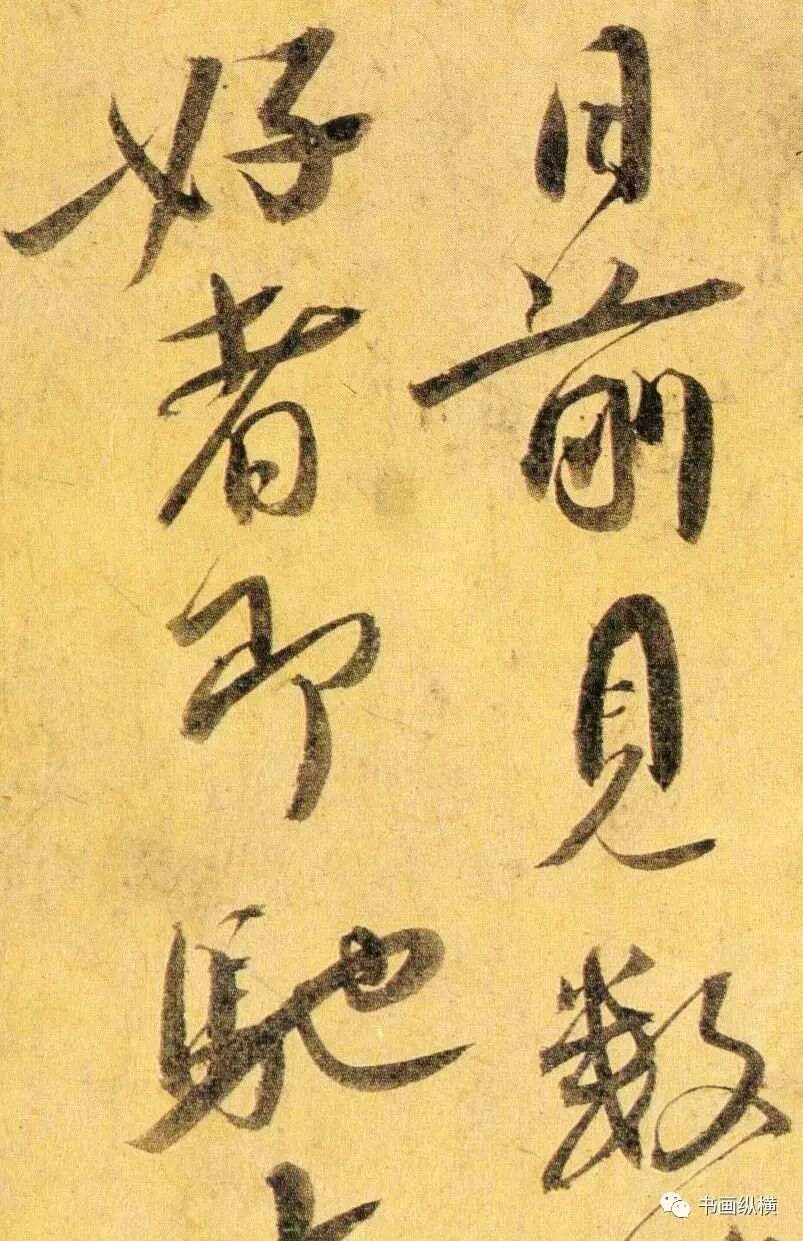 日前見數
好者即馳
书画纵横